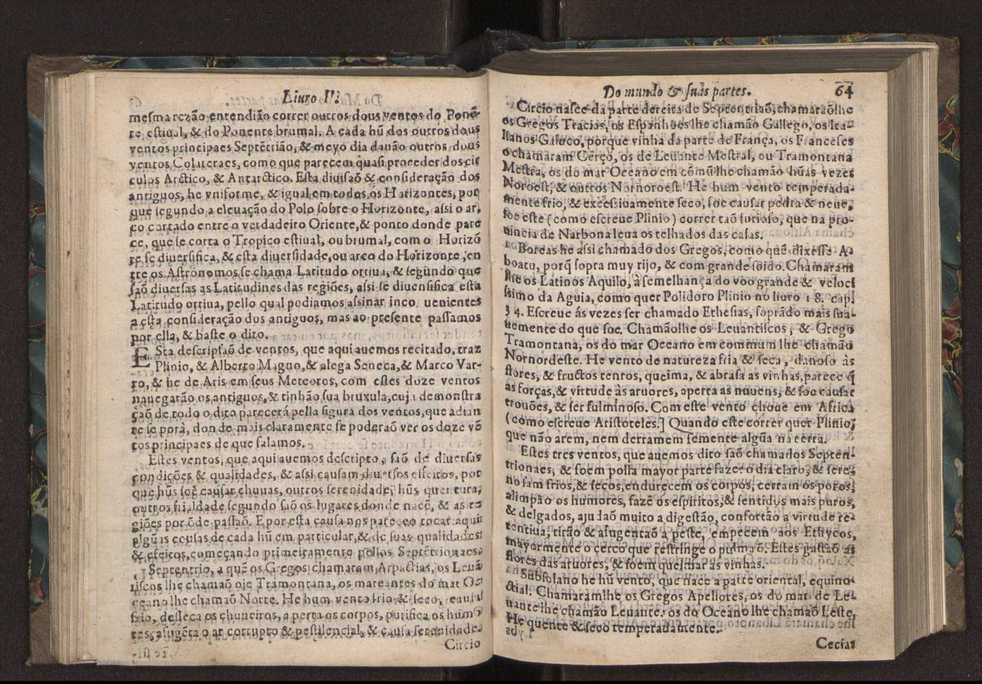 Liuro II.
mesma rezão entendião correr outros dous ventos do Ponẽ-
te estiual, & do Ponente brumal. A cada hũ dos outros dous
ventos principaes Septẽtrião, & meyo dia dauão outros dous
ventos Colateraes, como que parecem quasi proceder dos cir
culos Arctico, & Antarctico. Esta diuisaõ & consideração dos
antiguos, he vniforme, & igual em todos os Horizontes, por
que segundo a eleuação do Polo sobre o Horizonte, assi o ar-
co cortado entre o verdadeiro Oriente, & ponto donde pare
ce, que se corta o Tropico estiual, ou brumal, com o Horizõ
te se diuersifica, & esta diuersidade, ou arco do Horizonte, en
tre os Astronomos se chama Latitudo ortiua, & segundo que
saõ diuersas as Latitudines das regiões, assi se diuersifica esta
Latitudo ortiua, pello qual podiamos assinar inco. uenientes
a esta consideração dos antiguos, mas ao presente passamos
por ella, & baste o dito.
ESta descripsaõ de ventos, que aqui auemos recitado, traz
Plinio, & Alberto Magno, & alega Seneca, & Marco Var-
ro, & he de Aris em seus Meteoros, com estes doze ventos
nauegarão os antiguos, & tinhão sua bruxula, cuja demonstra
ção de todo o dito parecerá pella figura dos ventos, que adian
te se porá, donde mais claramente se poderaõ ver os doze vẽ
tos principaes de que falamos.
Estes ventos, que aqui auemos descripto, saõ de diuersas
condições & qualidades, & assi causam diuersos effeitos, por
que hũs soẽ causar chuuas, outros serenidade, hũs quentura,
outros frialdade segundo saõ os lugares donde nacẽ, & as re
giões por õde passaõ. E por esta causa nos pareceo tocar aqui
algũas cousas de cada hũ em particular, & de suas qualidades
& efeitos, começando primeiramento pellos Septẽtrionaes.
Septentrio, a quẽ os Gregos chamaram Arpactias, os Leuã
tiscos lhe chamaõ oje Tramontana, os mareantes do mar O-
ceano lhe chamaõ Norte. He hum vento frio, & seco, causa
frio, desseca os chuueiros, aperta os corpos, purifica os humo-
res, afugẽta o ar corrupto & pestilencial, & causa serenidade.
Circio
Do mundo & suas partes. 64
Circio nasce da parte dereita de Septentriaõ, chamaraõlhe
os Gregos Tracias, os Espanhoes lhe chamão Gallego, os Ita-
lianos Galoco, porque vinha da parte de França, os Franceses
o chamaram Cerço, os de Leuante Mestral, ou Tramontana
Mestra, os do mar Oceano em comũ lhe chamão hũas vezes
Noroest, & outros Nornoroest. He hum vento temperada-
mente frio, & excessiuamente seco, soe causar pedra & neue,
soe este (como escreue Plinio) correr taõ furioso, que na pro-
uincia de Narbona leua os telhados das casas.
Boreas he assi chamado dos Gregos, como quẽ dixesse A
boatu, porq̃ sopra muy rijo, & com grande soido. Chamaram
lhe os Latinos Aquilo, à semelhança do voo grande & veloci
ssimo da Aguia, como quer Polidoro Plinio no liuro 18. capi
34. Escreue ás vezes ser chamado Ethesias, soprãdo mais sua-
uemente do que soe. Chamãolhe os Leuantiscos, & Grego
Tramontana, os do mar Oceano em commum lhe chamão
Nornordeste. He vento de natureza fria & seca, danoso às
flores, & fructos tenros, queima, & abrasa as vinhas, parece q̃
as forças, & virtude às aruores, operta as nuuens, & soe causar
trouões, & ser fulminoso. Com este vento choue em Africa
(como escreue Aristoteles.] Quando este correr quer Plinio,
que não àrem, nem derramem semente algũa na terra.
Estes tres ventos, que auemos dito saõ chamados Septen-
trionaes, & soem polla mayor parte fazer o dia claro, & sere-
no sam frios, & secos, endurecem os corpos, cerram os poros,
alimpão os humores, fazẽ os espiritos, & sentidos mais puros,
& delgados, ajudaõ muito a digestão, confortão a virtude re-
tentiua, tirão & afugentaõ a peste, empecem aos Ethycos,
mayormente o cerco que restringe o pulmaõ. Estes gastão as
flores das aruores, & soem queimar as vinhas.
Subsolano he hũ vento, que nace a parte oriental, equino-
ctial. Chamaramlhe os Gregos Apeliores, os do mar de Le-
uante lhe chamão Leuante, os do Oceano lhe chamão Leste,
He quente & seco temperadamente.
Cecias